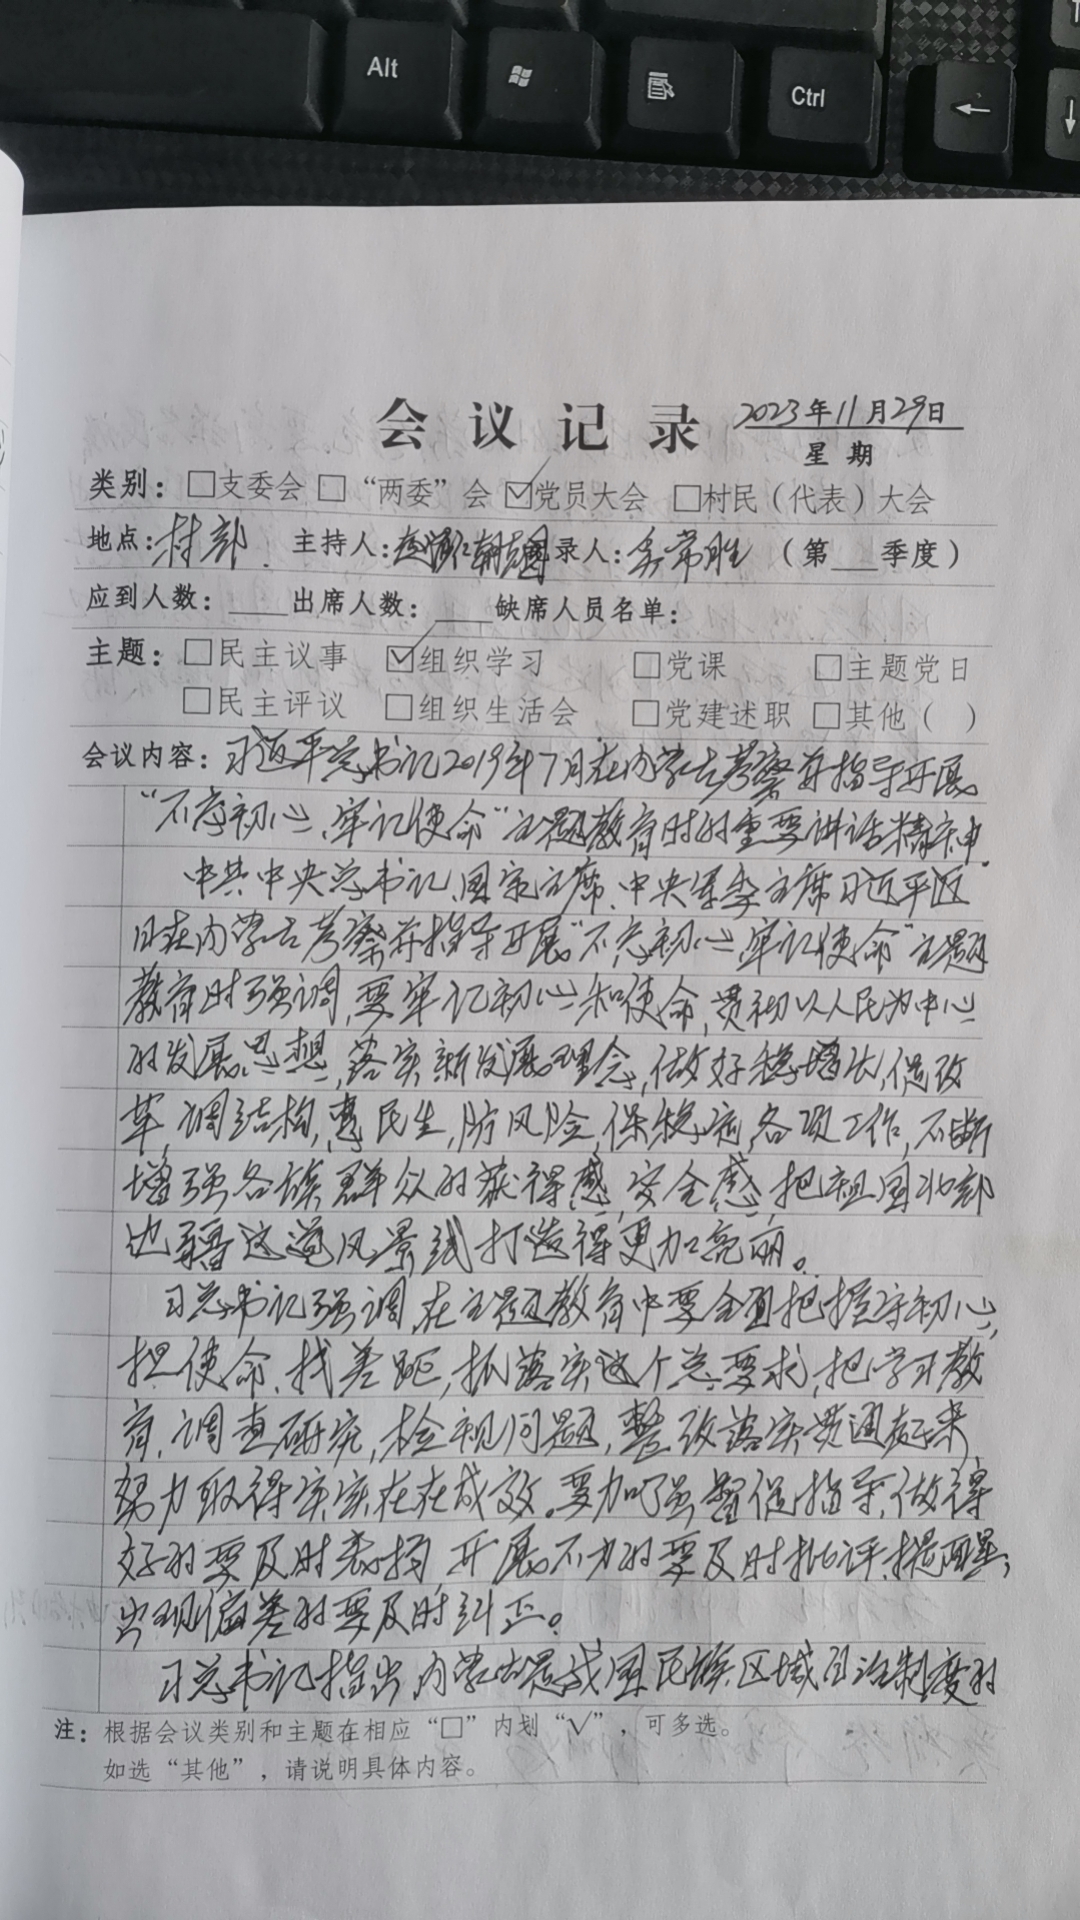 Alt
Ctrl
会议记录 2023年11月29日
星期
类别：□支委会 □“两委”会 ☑党员大会 □村民（代表）大会
地点：村部 主持人： 录人：常胜 （第___季度）
应到人数：____出席人数：____缺席人员名单：
主题：□民主议事 ☑组织学习 □党课 □主题党日
□民主评议 □组织生活会 □党建述职 □其他（ ）
会议内容：习近平总书记2019年7月在内蒙古考察并指导开展
“不忘初心、牢记使命”主题教育时的重要讲话精神.
中共中央总书记、国家主席、中央军委主席习近平近
日在内蒙古考察并指导开展“不忘初心、牢记使命”主题
教育时强调，要牢记初心和使命，贯彻以人民为中心
的发展思想，落实新发展理念，做好稳增长，促改
革，调结构，惠民生，防风险，保稳定，各项工作，不断
增强各族群众的获得感，安全感，把祖国北部
边疆这道风景线打造得更加亮丽。
习总书记强调，在主题教育中要全面把握守初心，
担使命、找差距，抓落实这个总要求，把学习教
育，调查研究，检视问题，整改落实贯通起来，
努力取得实实在在成效。要加强督促指导，做得
好的要及时表扬，开展不力的要及时批评、提醒；
出现偏差的要及时纠正。
习总书记指出，内蒙古是我国民族区域自治制度的
注：根据会议类别和主题在相应“□”内划“√”，可多选。
如选“其他”，请说明具体内容。